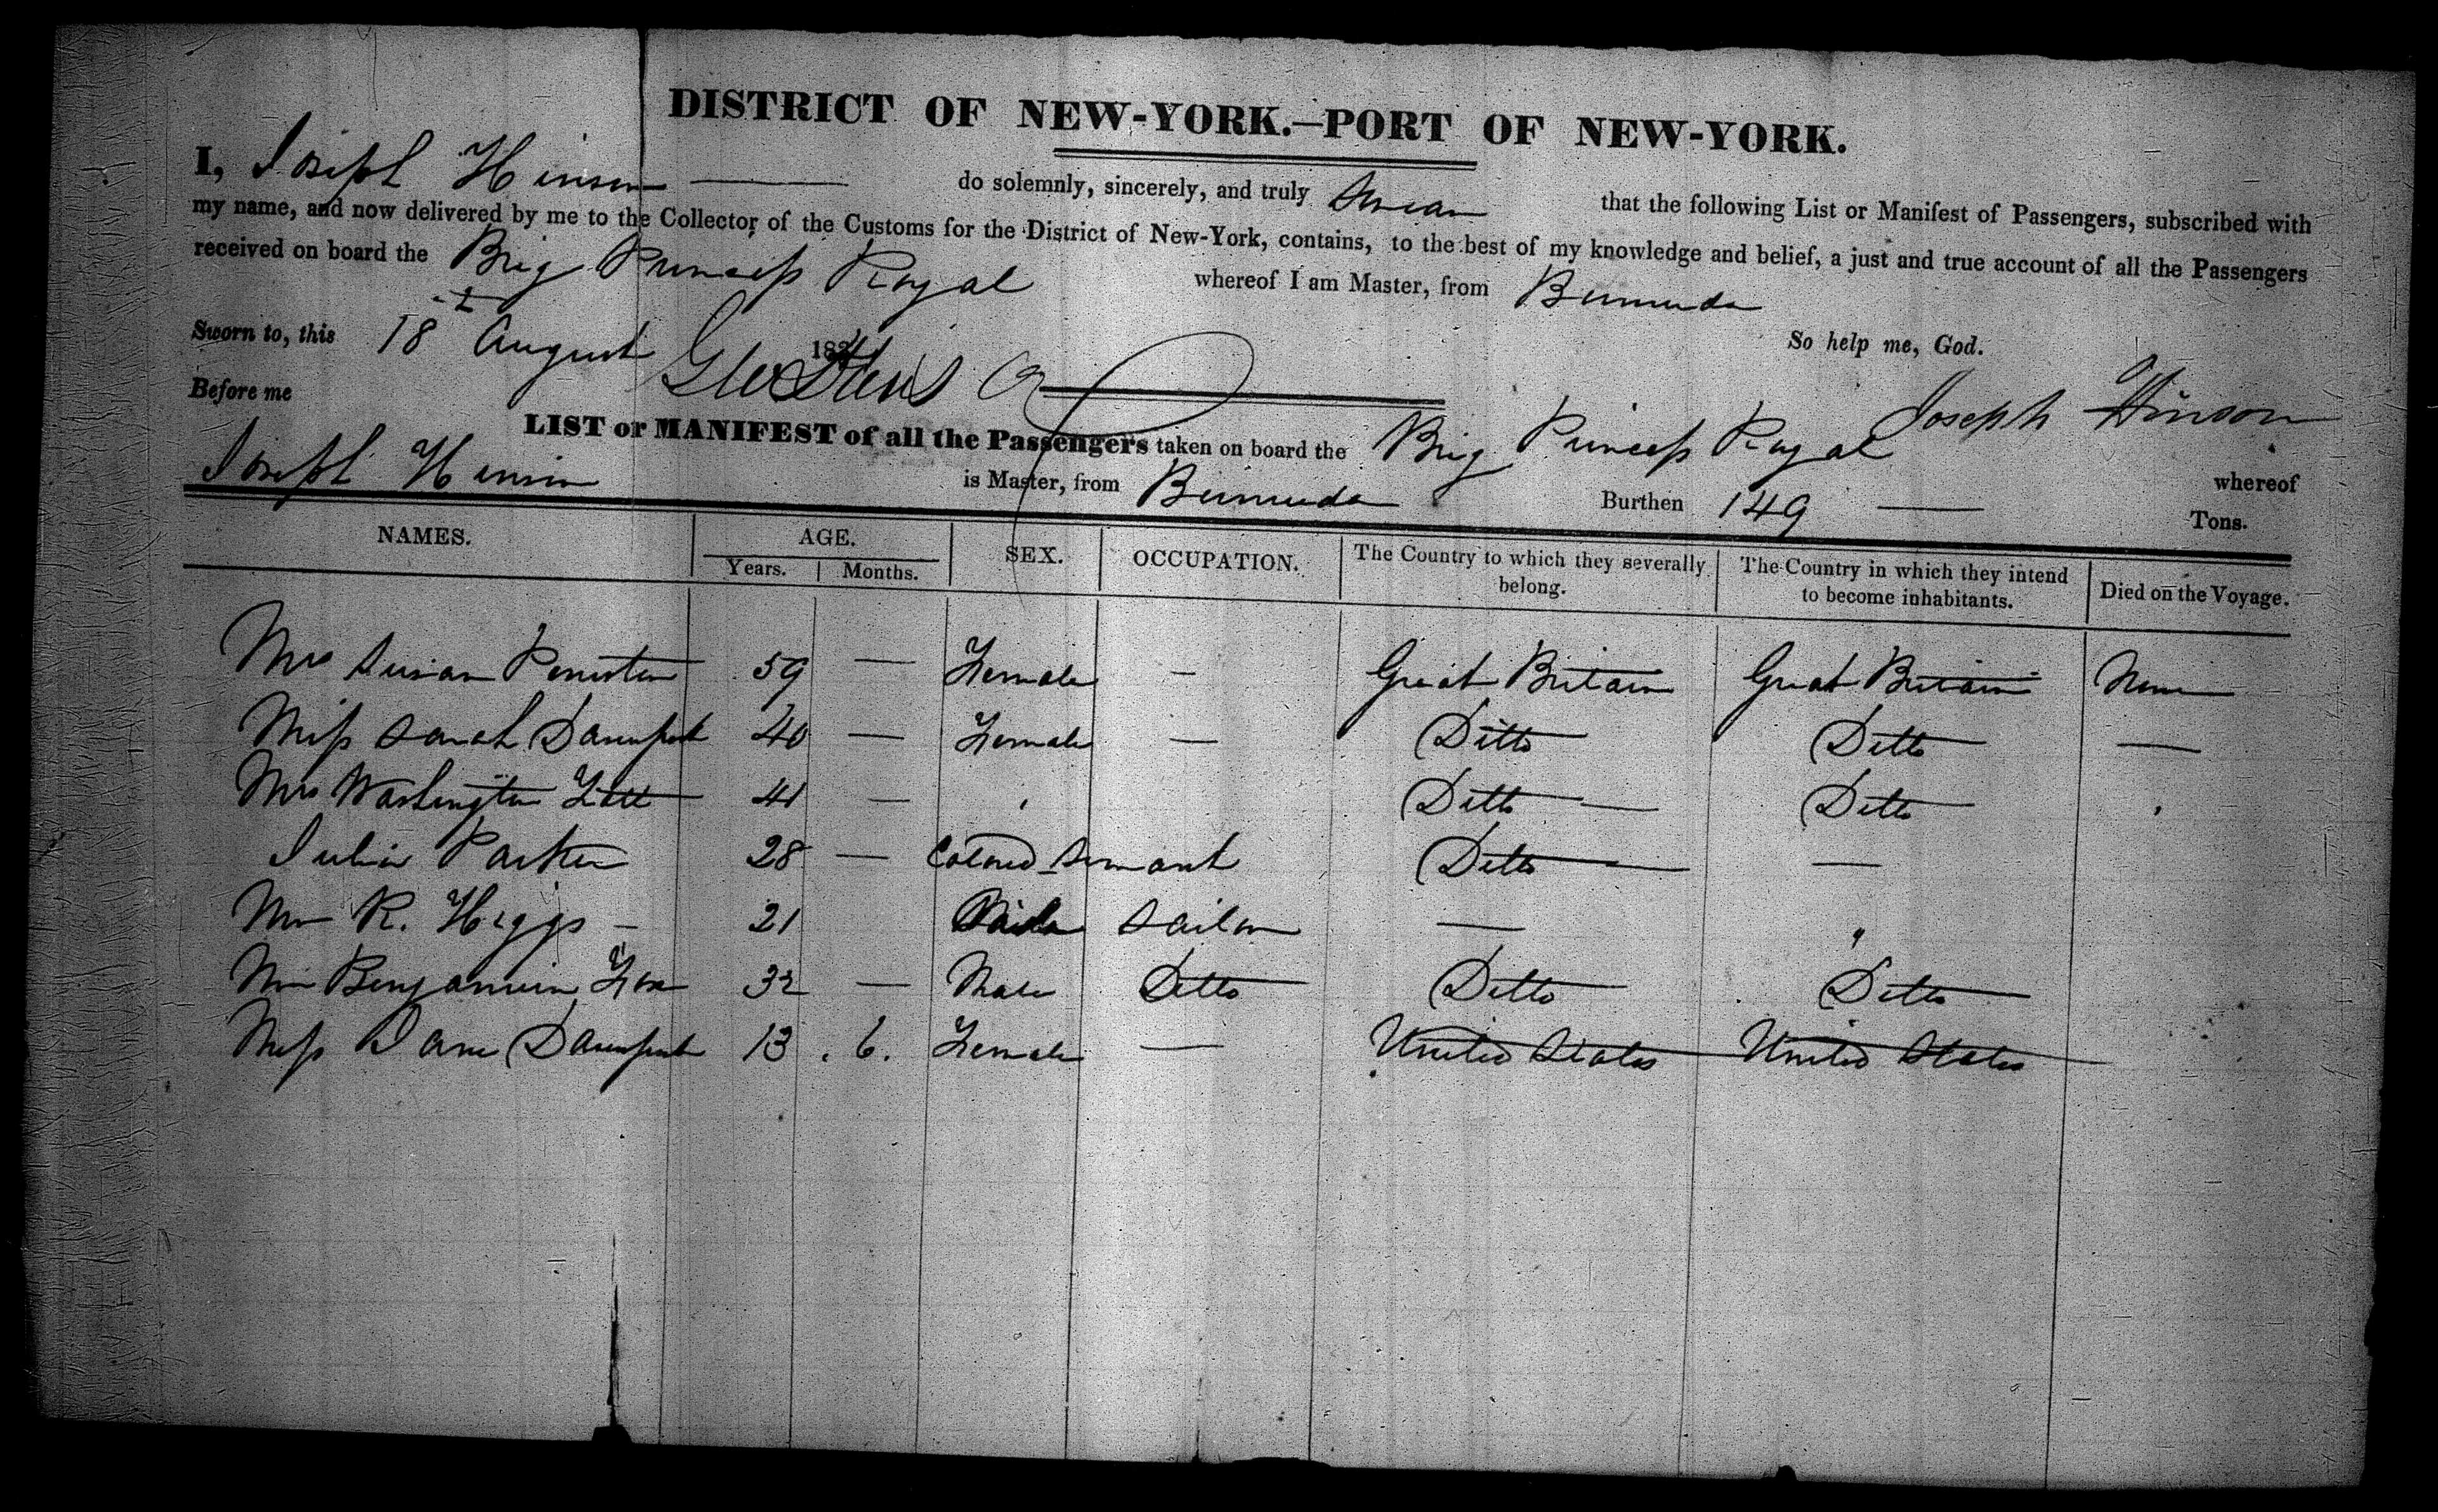 DISTRICT OF NEW-YORK.—PORT OF NEW-YORK.
I, Joseph Hinson do solemnly, sincerely, and truly Swear that the following List or Manifest of Passengers, subscribed with
my name, and now delivered by me to the Collector of the Customs for the District of New-York, contains, to the best of my knowledge and belief, a just and true account of all the Passengers
received on board the Brig Princess Royal whereof I am Master, from Bermuda
Sworn to, this 18th August 182 So help me, God.
Before me Joseph Hinson
LIST or MANIFEST of all the Passengers taken on board the Brig Princess Royal whereof
Joseph Hinson is Master, from Bermuda Burthen 149 — Tons.
NAMES. AGE. SEX. OCCUPATION. The Country to which they severally belong. The Country in which they intend to become inhabitants. Died on the Voyage.
Years. Months.
Mrs Susan Peniston 59 — Female — Great Britain Great Britain None
Miss Sarah Davenport 40 — Female — Ditto Ditto —
Mrs Washington 41 — Ditto — Ditto
Julia Parker 28 — Colored Servant Ditto — —
Mr R. Higgs — 21 Male Sailor — "
Mr Benjamin Fox 32 — Male Ditto Ditto Ditto
Miss Jane Davenport 13 . 6. Female — United States United States